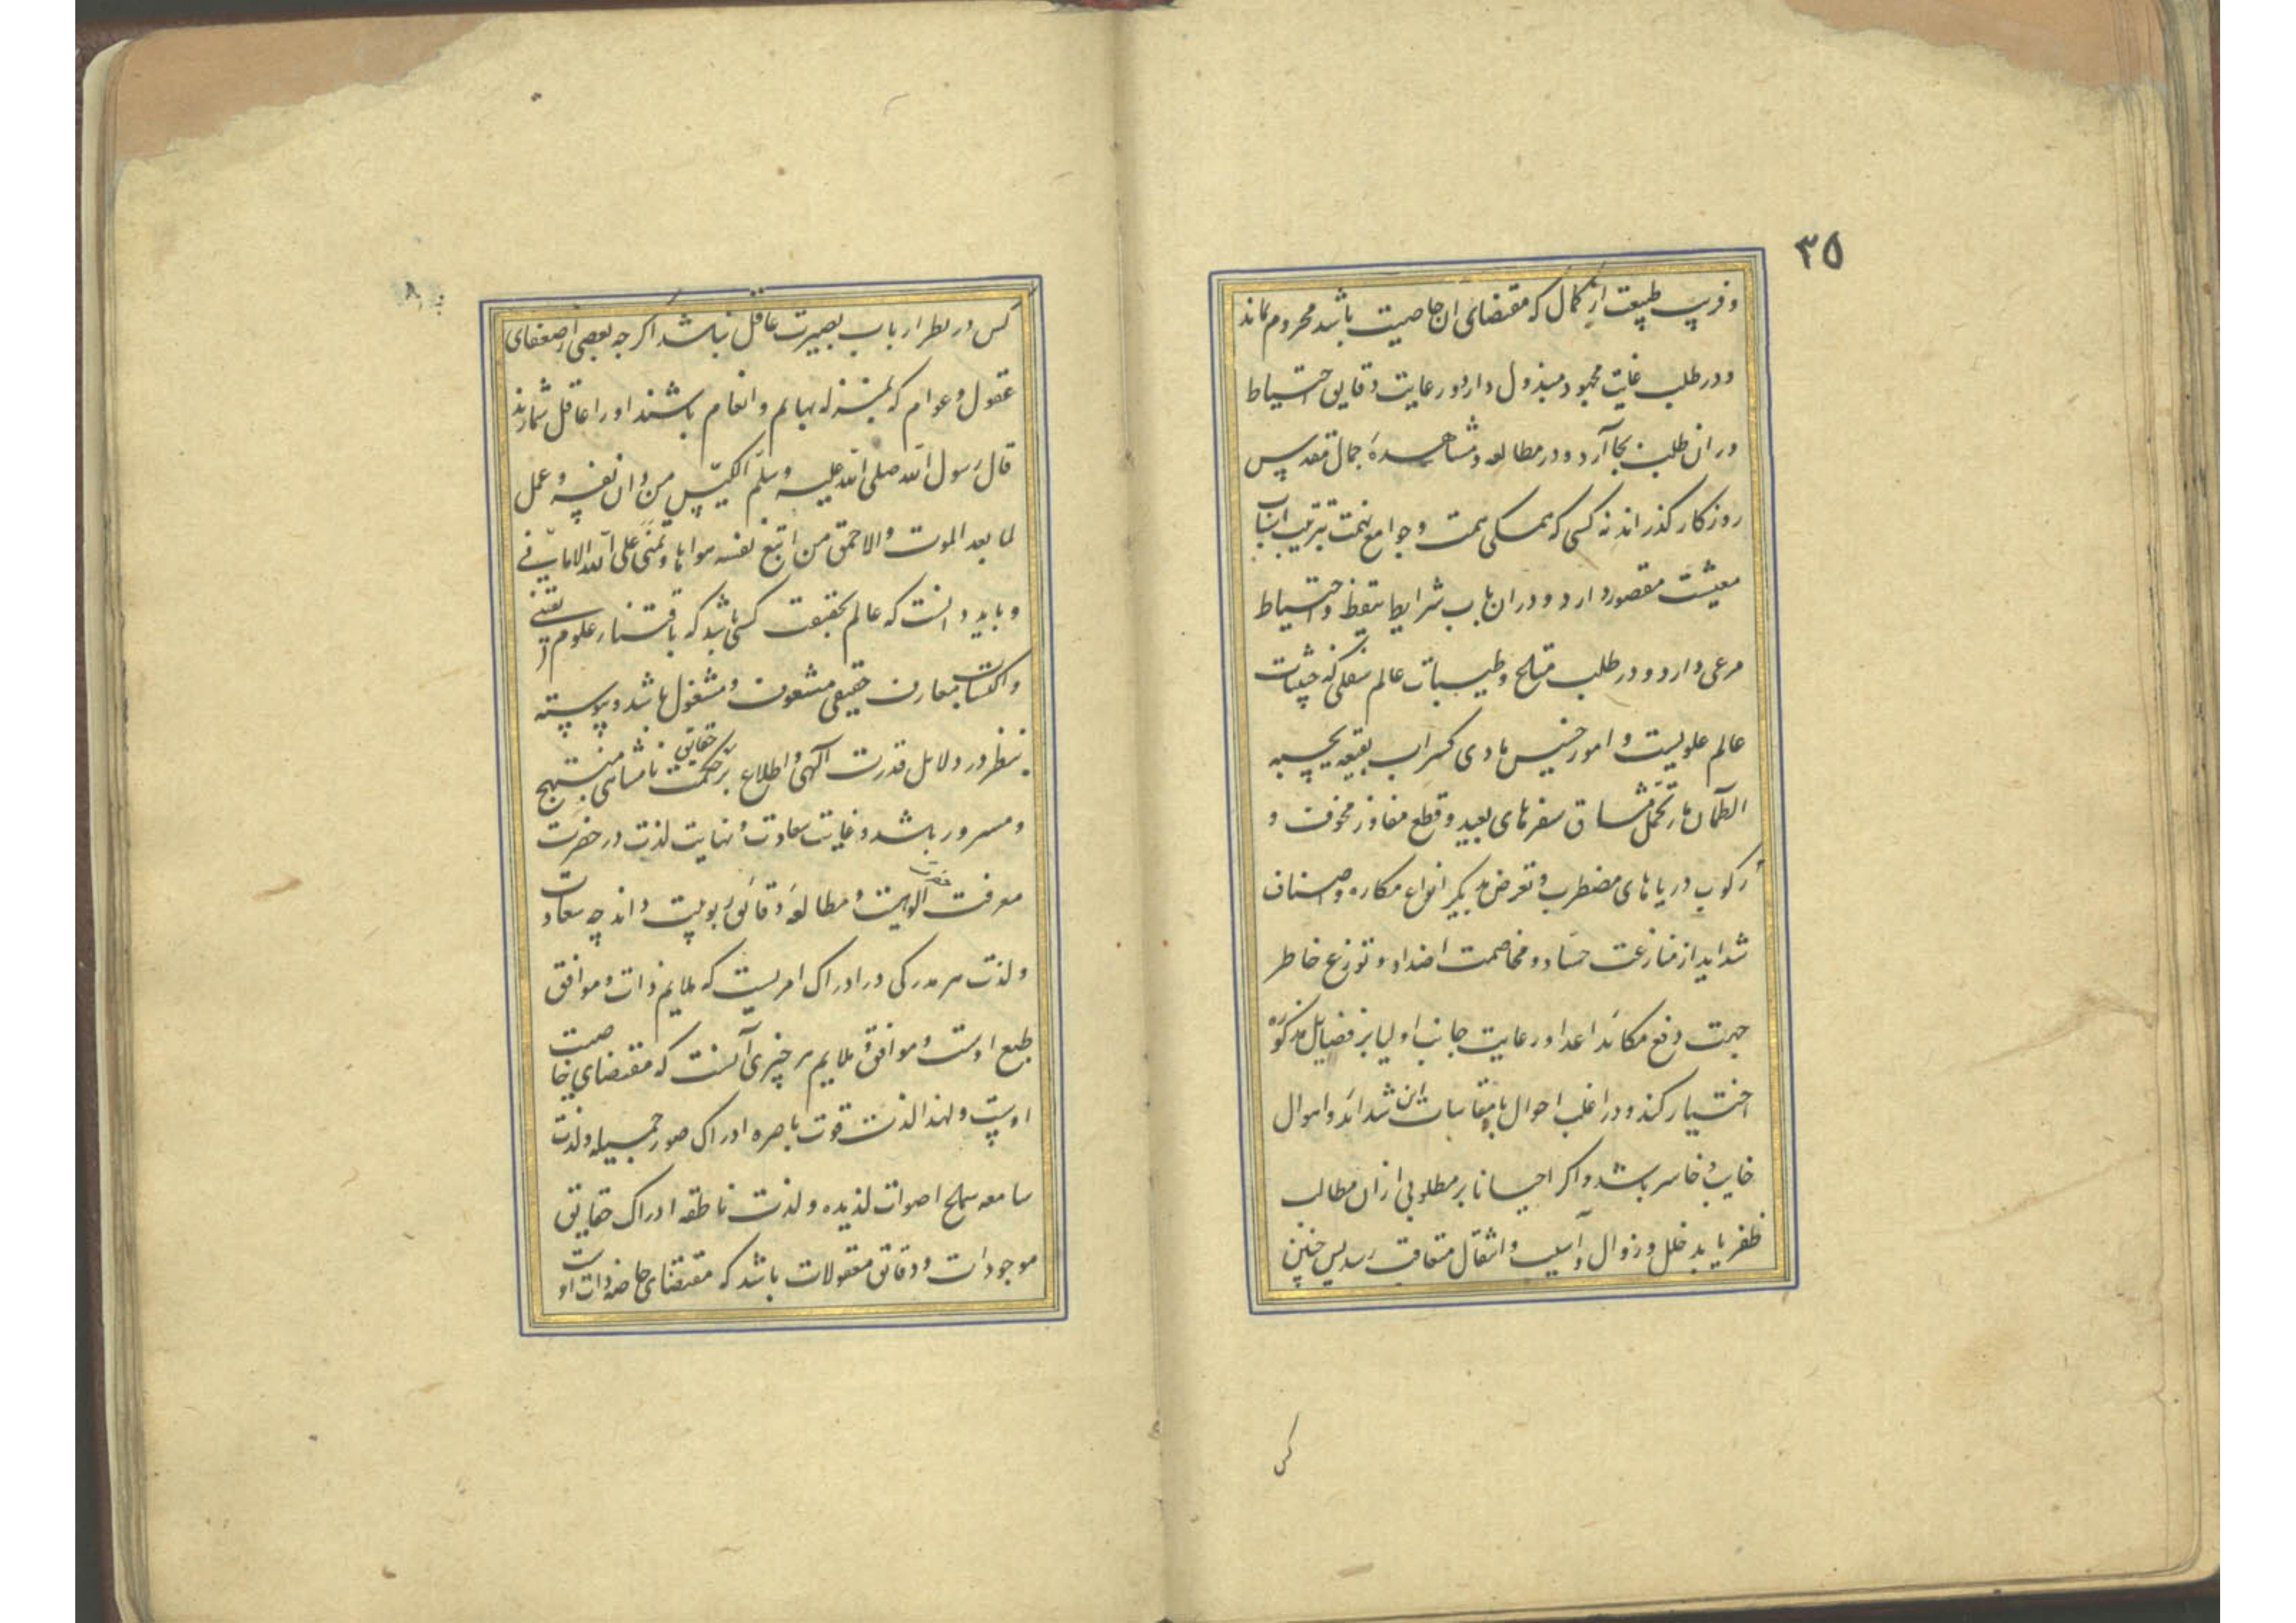 ۳۵
و فریب طبیعت از کمال که مقتضای ان خاصیت باشد محروم نماند
و در طلب غایت مجهود مبذول دارد و رعایت دقایق احتیاط
در ان طلب بجا آرد و در مطالعه و مشاهدهٔ جمال مقدس
روزکار کذراند نه کسی که همکی همت و جوامع نهمت بترتیب اسباب
معیشت مقصور دارد و در ان باب شرایط تیقظ و احتیاط
مرعی دارد و در طلب و طیبات عالم سفلی که خبیثات
عالم علویست و امور خسیس مادی کسراب بقیعه یحسبه
الظمآن ماء تحمل مشاق سفرهای بعید و قطع مفاوز مخوف و
رکوب دریاهای مضطرب و تعرض دیکر انواع مکاره و اصناف
شداید از منازعت حساد و مخاصمت اضداد و توزع خاطر
جهت دفع مکائد اعدا و رعایت جانب اولیا بر فضایل مذکوره
اختیار کند و در اغلب احوال با مقاسات این شدائد و اهوال
خایب و خاسر باشد و اکر احیانا بر مطلوبی از ان مطالب
ظفر یابد خلل و زوال و آسیب و انتقال متعاقب رسد پس چنین
کس
کس در نظر ارباب بصیرت عاقل نباشد اکر چه بعضی از ضعفای
عقول و عوام که بمنزله بهایم و انعام باشند او را عاقل شمارند
قال رسول الله صلی الله علیه وسلم الکیس من دان نفسه وعمل
لما بعد الموت والاحمق من اتبع نفسه هواها وتمنی علی الله الامانی
و باید دانست که عالم بحقیقت کسی باشد که باقتناء علوم یقینی
و اکتساب معارف حقیقی مشعوف و مشغول باشد و پیوسته
بنظر در دلایل قدرت آلهی و اطلاع بر حقایق حکمت نامتناهی مبتهج
و مسرور باشد و غایت سعادت و نهایت لذت در حضرت
معرفت حضرت الوهیت و مطالعهٔ دقائق ربوبیت داند چه سعادت
و لذت هر مدرکی در ادراک امریست که ملایم ذات و موافق
طبع اوست و موافق و ملایم هر چیزی آنست که مقتضای خاصیت
اوست و لهذا لذت قوت باصره ادراک صور جمیله و لذت
سامعه سماع اصوات لذیذه و لذت ناطقه ادراک حقایق
موجودات و دقائق معقولات باشد که مقتضای ذات او